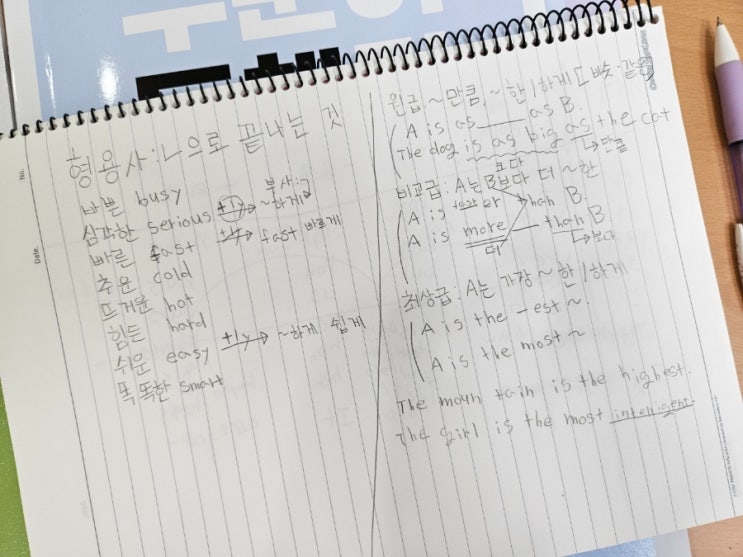 No.
Date
형용사:ㄴ으로 끝나는 것
부사:게
바쁜 busy
심각한 serious +ly → ~하게
빠른 fast +ly → fast 빠르게
추운 cold
뜨거운 hot
힘든 hard
쉬운 easy +ly → ~하게 쉽게
똑똑한 smart
원급:~만큼 ~한/하게 [비슷·같음
A is as ___ as B.
The dog is as big as the cat
→만큼
보다
비교급: A는 B보다 더 ~한
A is er than B.
A is more — than B
더 →보다
최상급: A는 가장 ~한/하게
A is the -est ~.
A is the most ~
The moun tain is the highest.
The girl is the most intelligent.